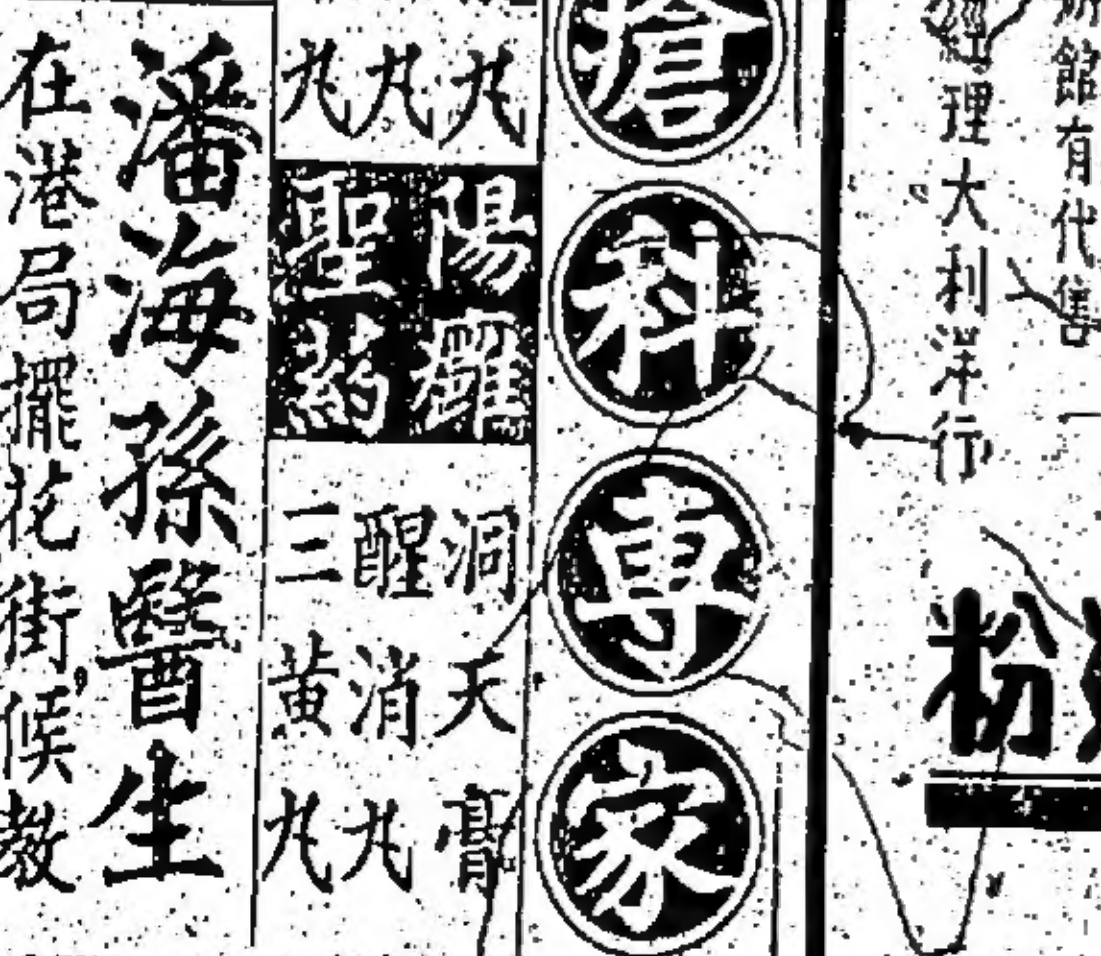 館有代售
經理大利洋行
粉
瘡科專家
丸 丸 丸
陽癰
聖药
洞天膏
醒消丸
三黃丸
潘海孫醫生
在港局擺花街候教